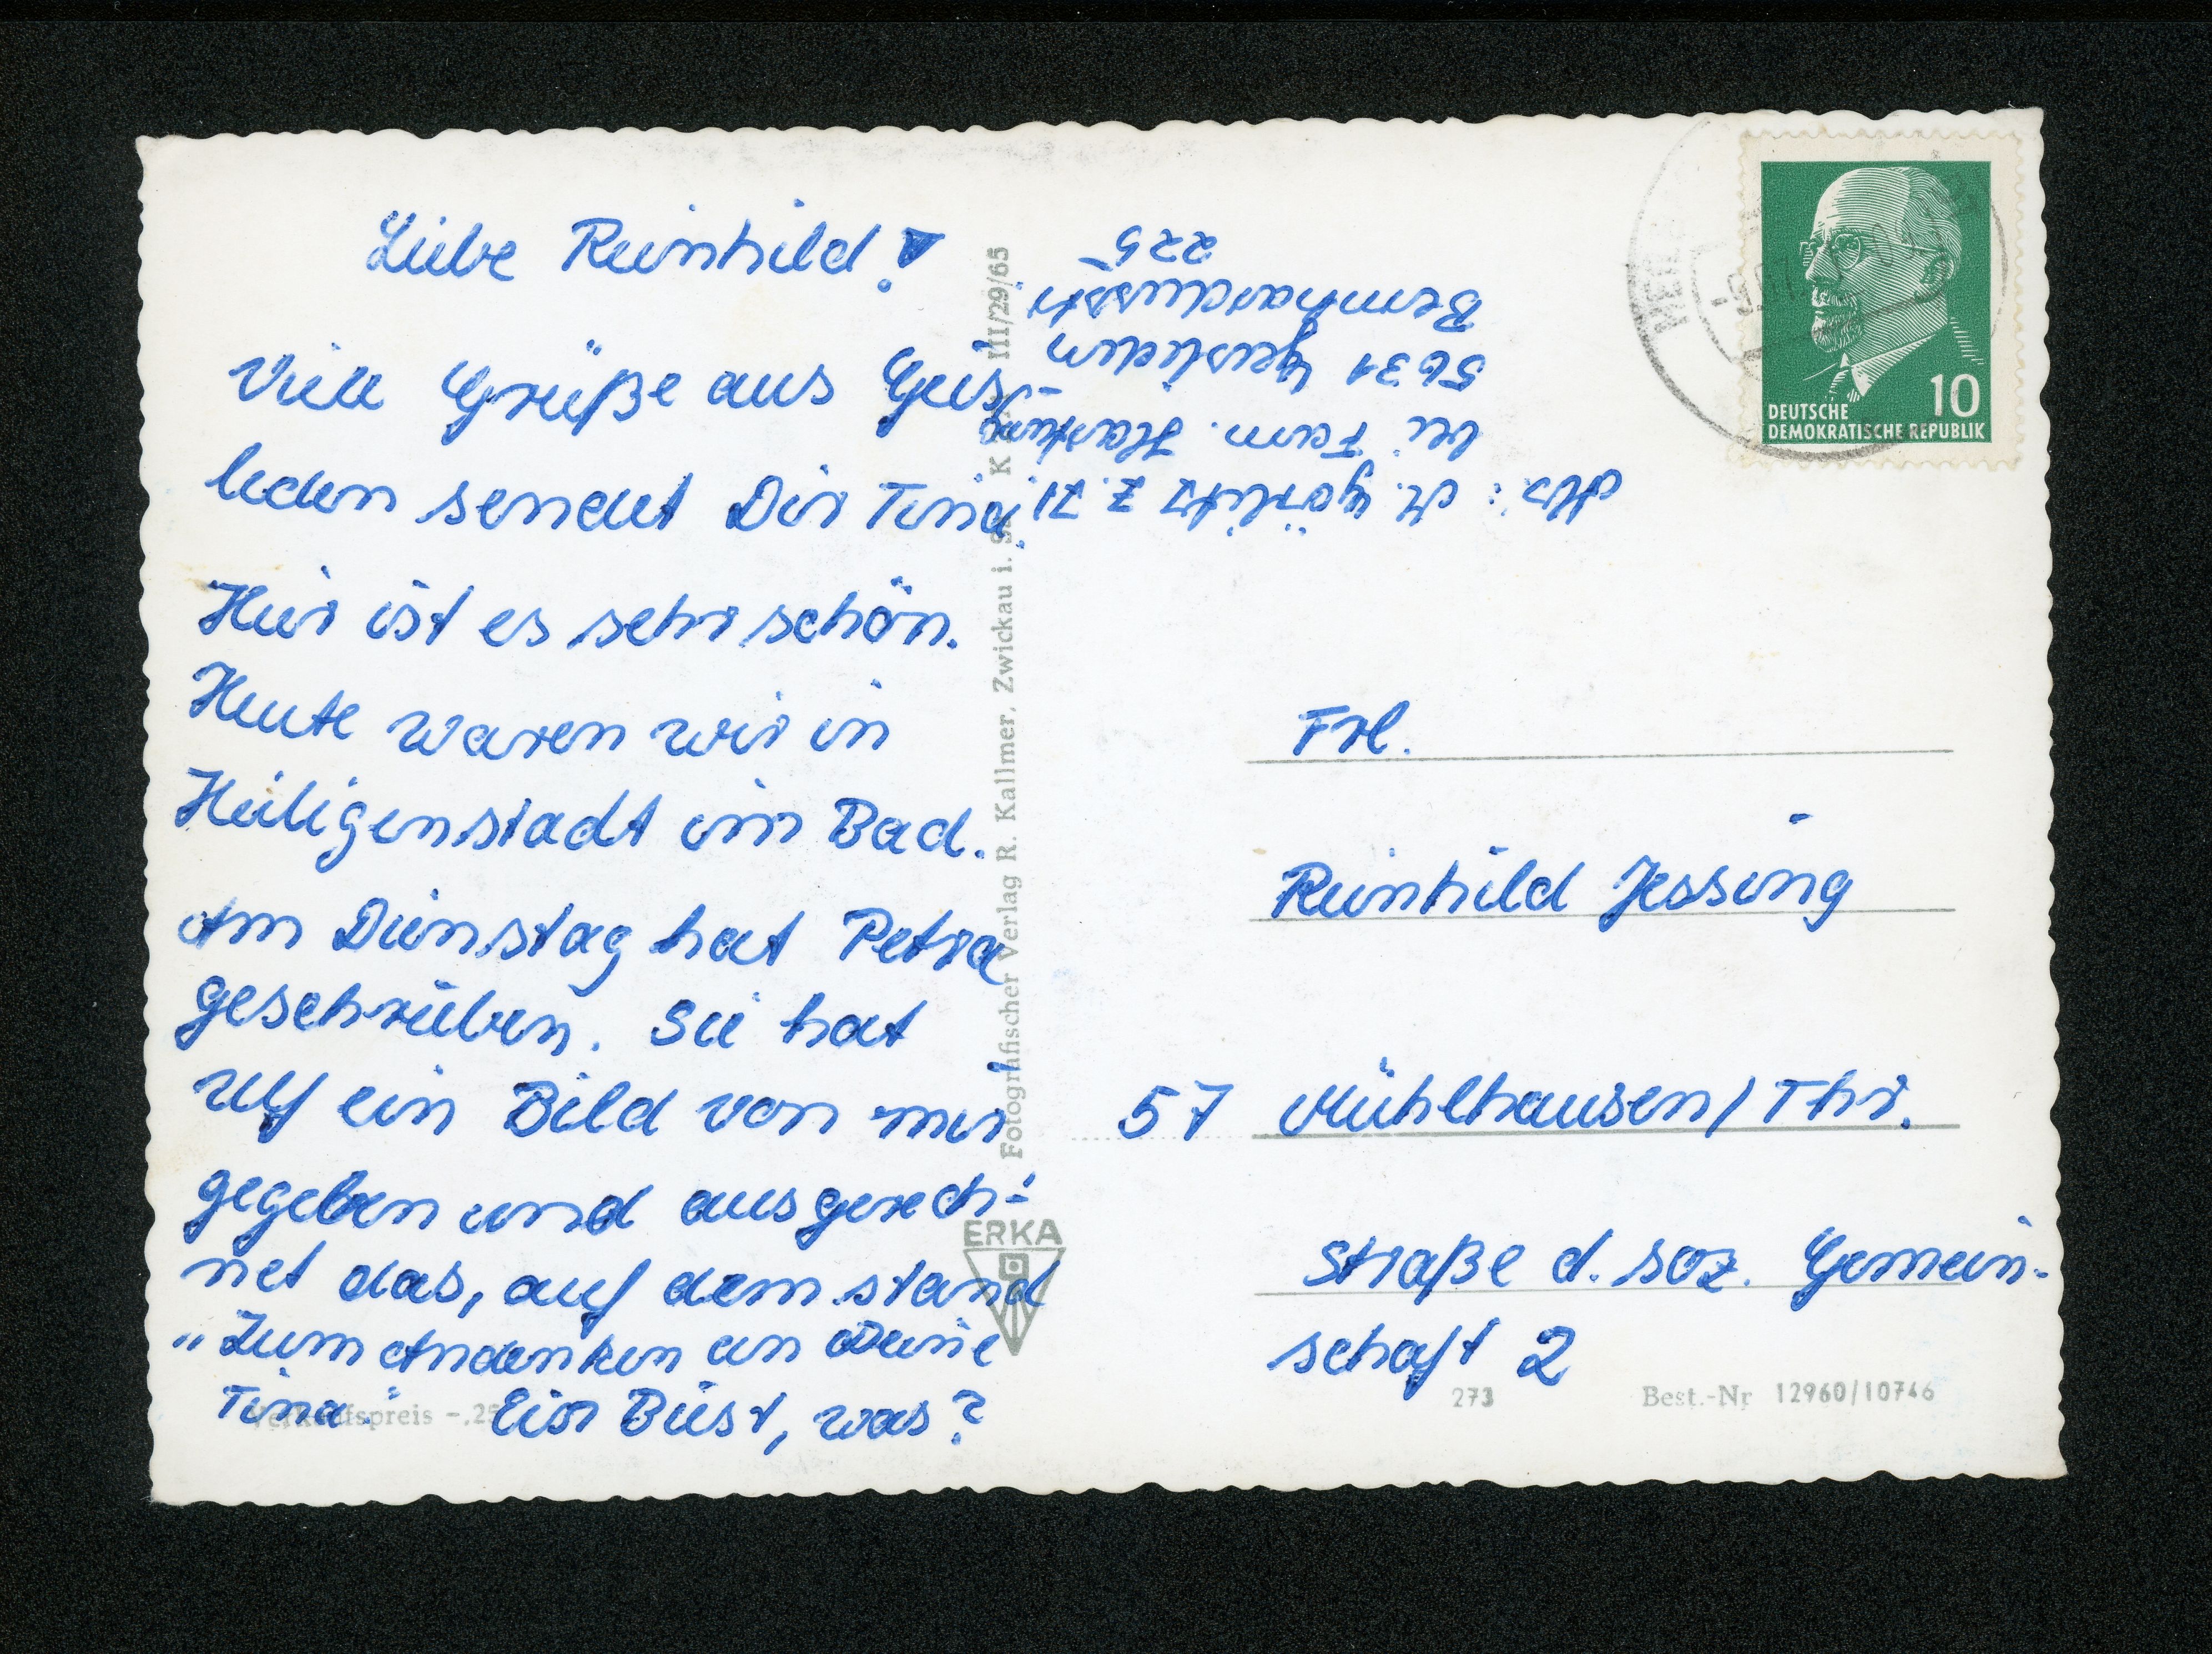 Liebe Reinhild!
Viele Grüße aus Geis-
leden sendet Dir Tina.
Hier ist es sehr schön.
Heute waren wir in
Heiligenstadt im Bad.
Am Dienstag hat Petra
geschrieben. Sie hat
Ulf ein Bild von mir
gegeben und ausgerech-
net das, auf dem stand
„Zum Andenken an Deine
Tina." Ein Biest, was?
Verkaufspreis -,25
Abs.: M. Görlitz z. Zt.
bei Fam. Hartung
5631 Geisleden
Bernhardusstr.
225
Fotografischer Verlag R. Kallmer, Zwickau i. Sa. K III/29/65
ERKA
10
DEUTSCHE
DEMOKRATISCHE REPUBLIK
Frl.
Reinhild Jessing
57 Mühlhausen/Thür.
Straße d. soz. Gemein-
schaft 2
273 Best.-Nr 12960/10746